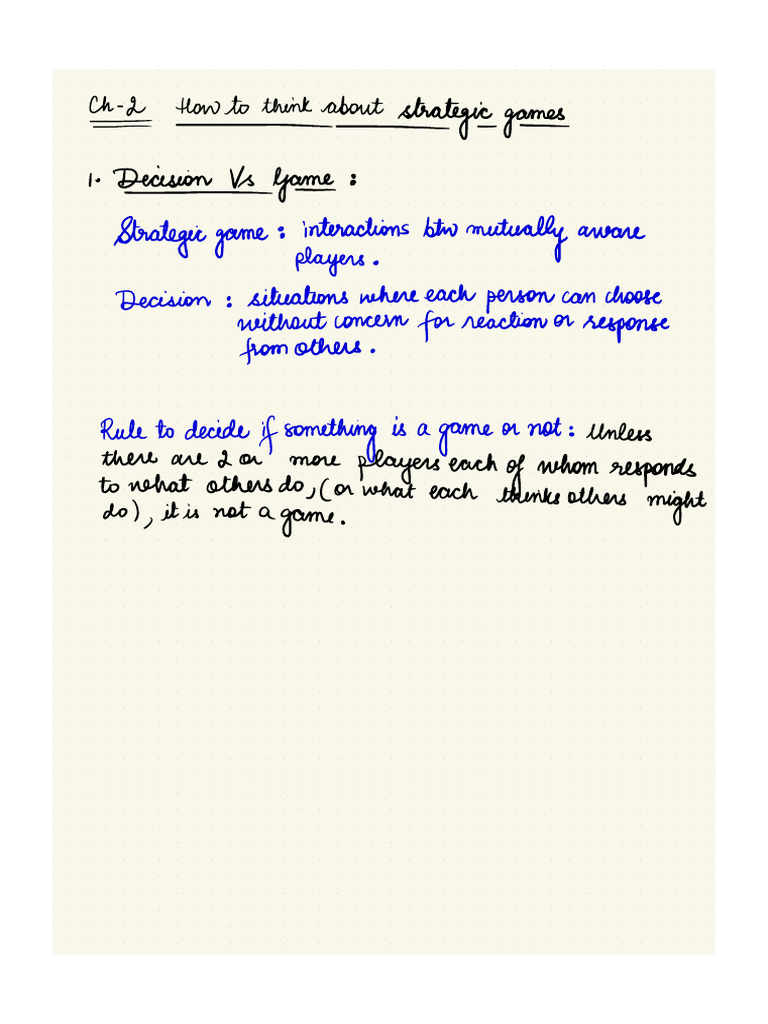 Ch-2 How to think about strategic games
1. Decision Vs Game :
Strategic game : interactions btw mutually aware
players.
Decision : situations where each person can choose
without concern for reaction or response
from others.
Rule to decide if something is a game or not : Unless
there are 2 or more players each of whom responds
to what others do, (or what each thinks others might
do), it is not a game.